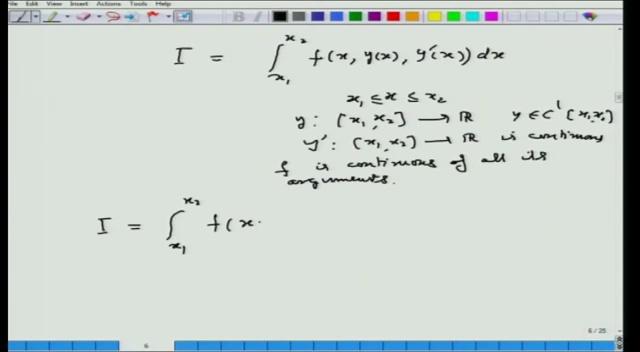 File Edit View Insert Actions Tools Help
I = ∫_{x₁}^{x₂} f(x, y(x), y'(x)) dx
x₁ ≤ x ≤ x₂
y : [x₁, x₂] → ℝ y ∈ C¹[x₁, x₂]
y' : [x₁, x₂] → ℝ is continuous
f is continuous of all its
arguments.
I = ∫_{x₁}^{x₂} f(x
6 / 25
6